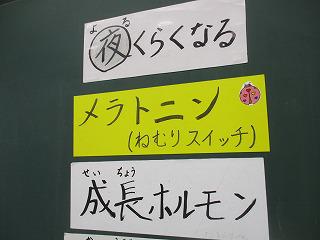 よる
夜くらくなる
メラトニン
(ねむりスイッチ)
せいちょう
成長ホルモン